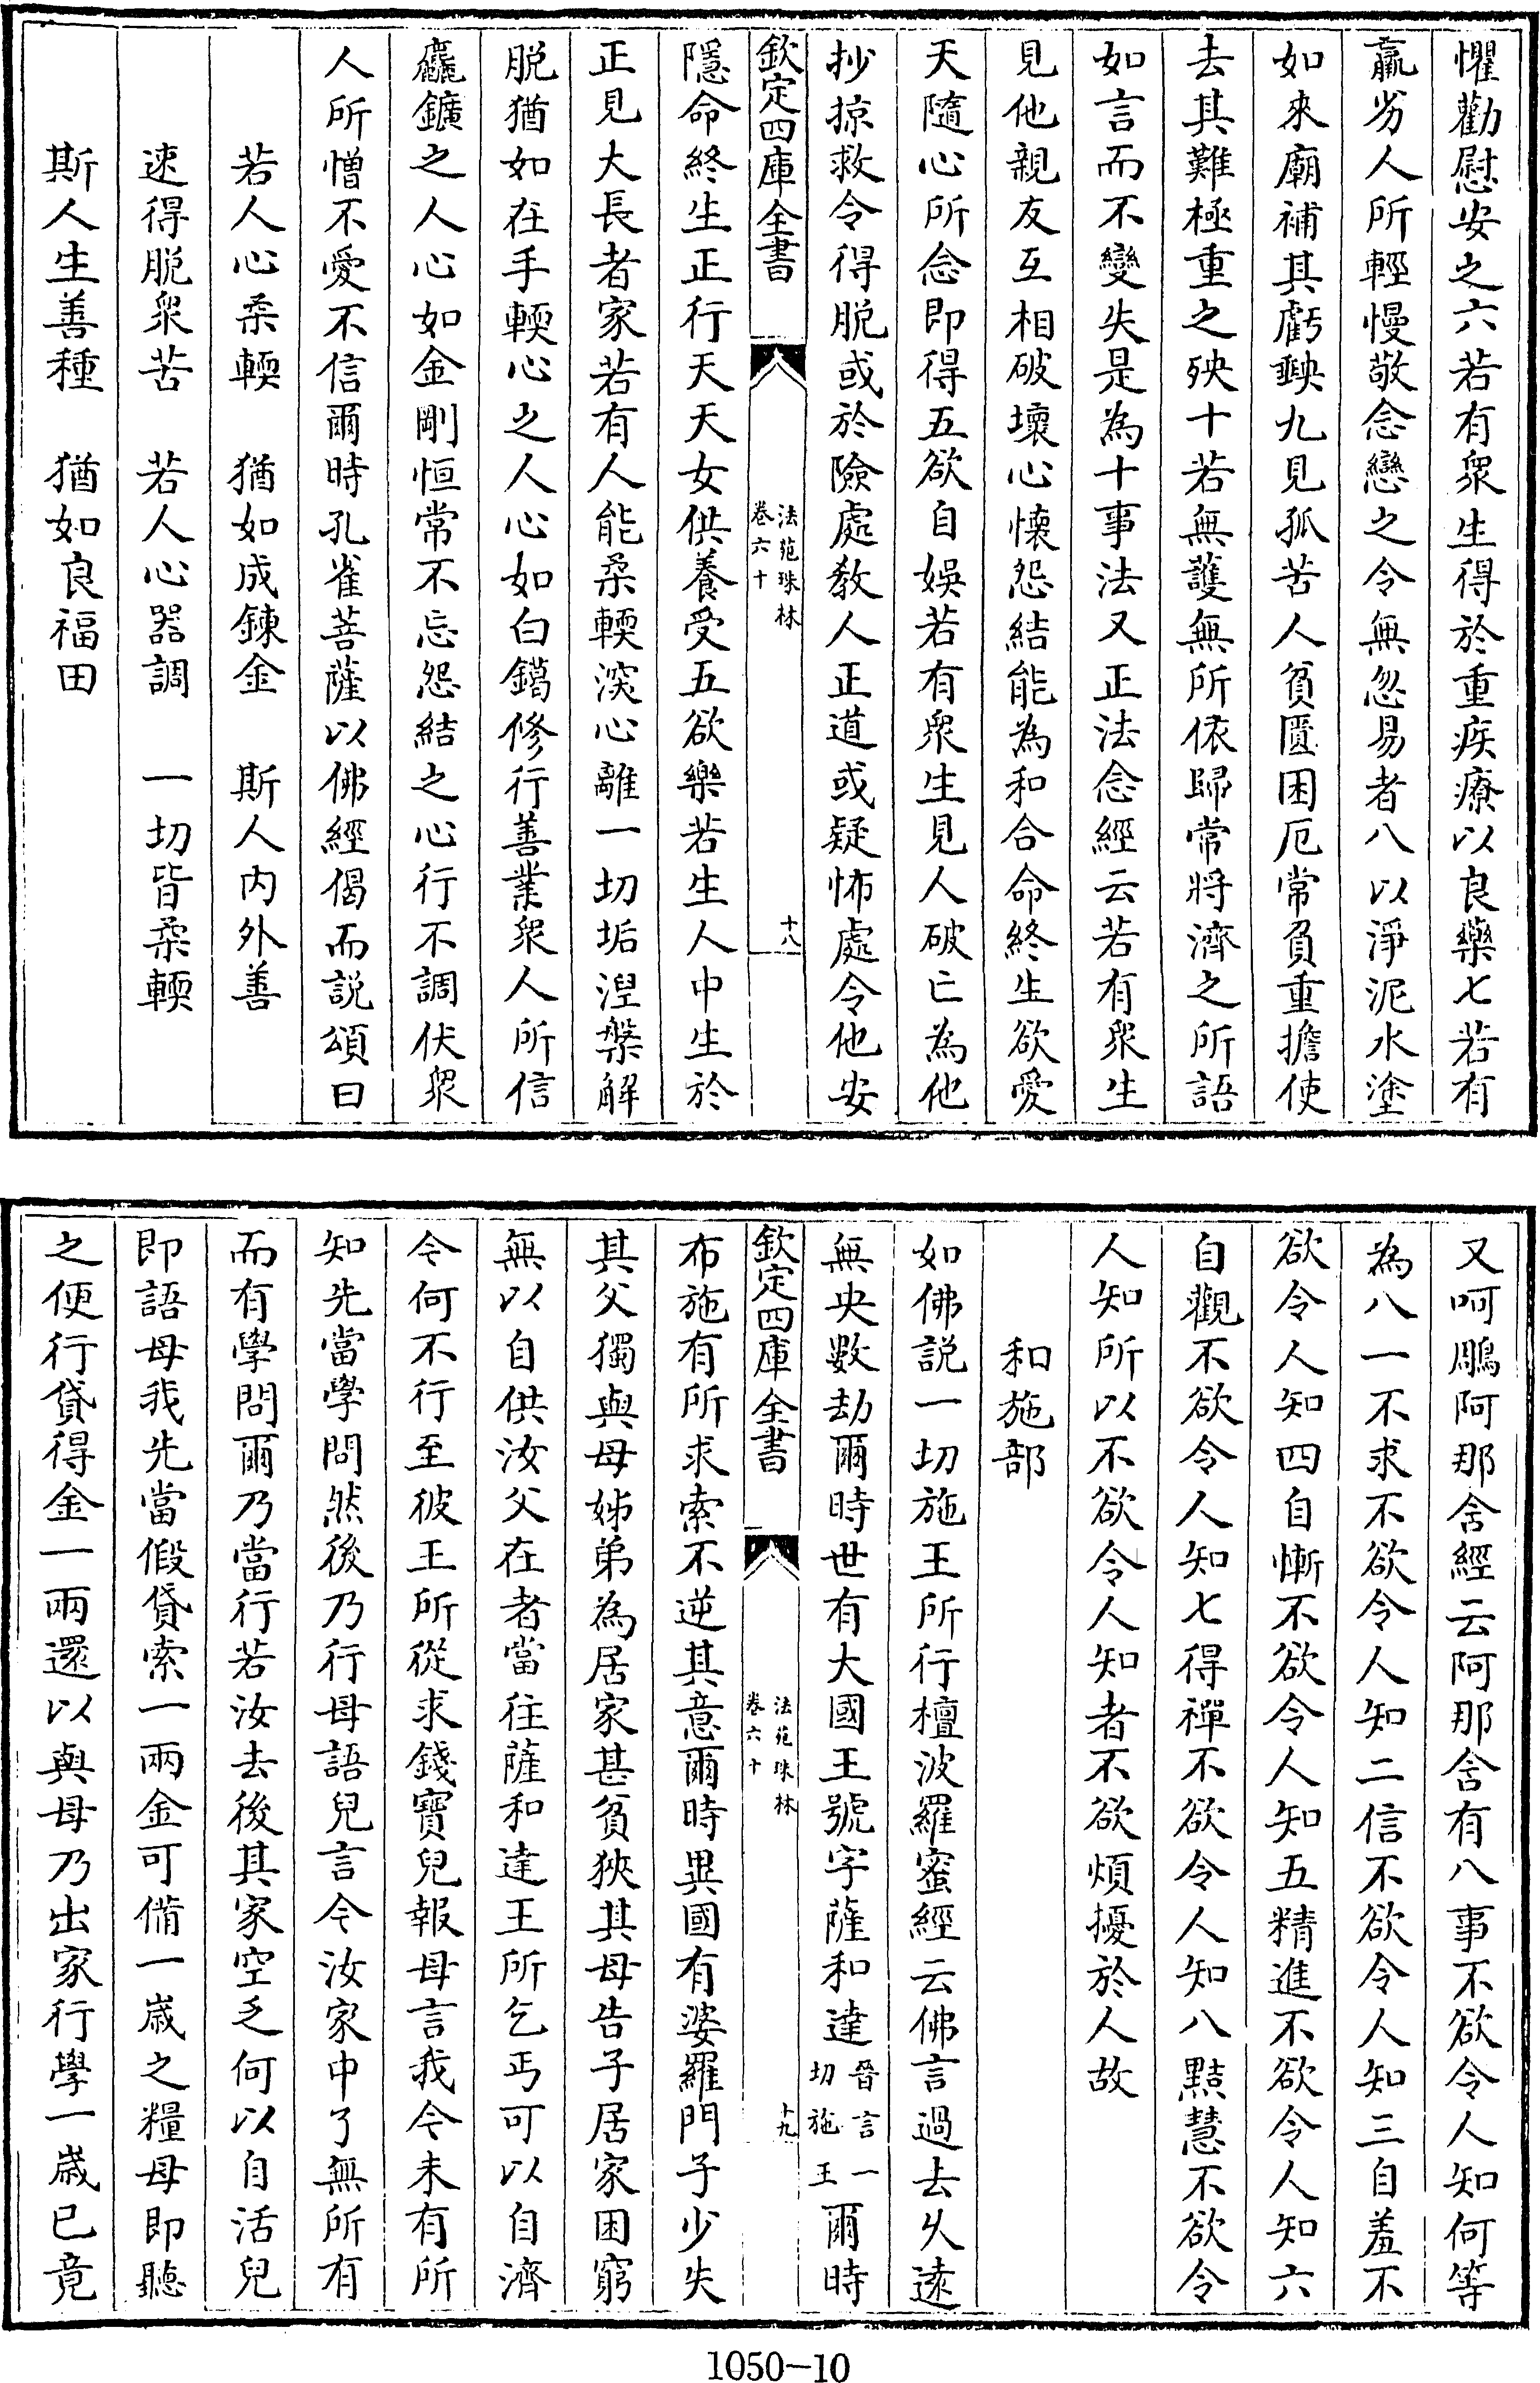 懼勸慰安之六若有衆生得於重疾療以良藥七若有
羸劣人所輕慢敬念戀之令無忽易者八以淨泥水塗
如來廟補其虧䡖九見孤苦人貧匱困厄常負重擔使
去其難極重之殃十若無護無所依歸常將濟之所語
如言而不變失是為十事法又正法念經云若有衆生
見他親友互相破壞心懷怨結能為和合命終生欲愛
天隨心所念即得五欲自娛若有衆生見人破亡為他
抄掠救令得脱或於險處教人正道或疑怖處令他安
欽定四庫全書
法苑珠林
卷六十
十八
隱命終生正行天天女供養受五欲樂若生人中生於
正見大長者家若有人能柔輭深心離一切垢湼槃解
脱猶如在手輭心之人心如白鑞修行善業衆人所信
麤鑛之人心如金剛恒常不忘怨結之心行不調伏衆
人所憎不愛不信爾時孔雀菩薩以佛經偈而説頌曰
若人心柔輭　猶如成鍊金　斯人内外善
速得脱衆苦　若人心器調　一切皆柔輭
斯人生善種　猶如良福田
又呵鵰阿那含經云阿那含有八事不欲令人知何等
為八一不求不欲令人知二信不欲令人知三自羞不
欲令人知四自慚不欲令人知五精進不欲令人知六
自觀不欲令人知七得禪不欲令人知八黠慧不欲令
人知所以不欲令人知者不欲煩擾於人故
和施部
如佛説一切施王所行檀波羅蜜經云佛言過去久遠
無央數劫爾時世有大國王號字薩和達晉言一切施王爾時
欽定四庫全書
法苑珠林
卷六十
十九
布施有所求索不逆其意爾時異國有婆羅門子少失
其父獨與母姊弟為居家甚貧狹其母告子居家困窮
無以自供汝父在者當往薩和達王所乞丐可以自濟
今何不行至彼王所從求錢寶兒報母言我今未有所
知先當學問然後乃行母語兒言今汝家中了無所有
而有學問爾乃當行若汝去後其家空乏何以自活兒
即語母我先當假貸索一兩金可備一嵗之糧母即聽
之便行貸得金一兩還以與母乃出家行學一嵗已竟
1050-10